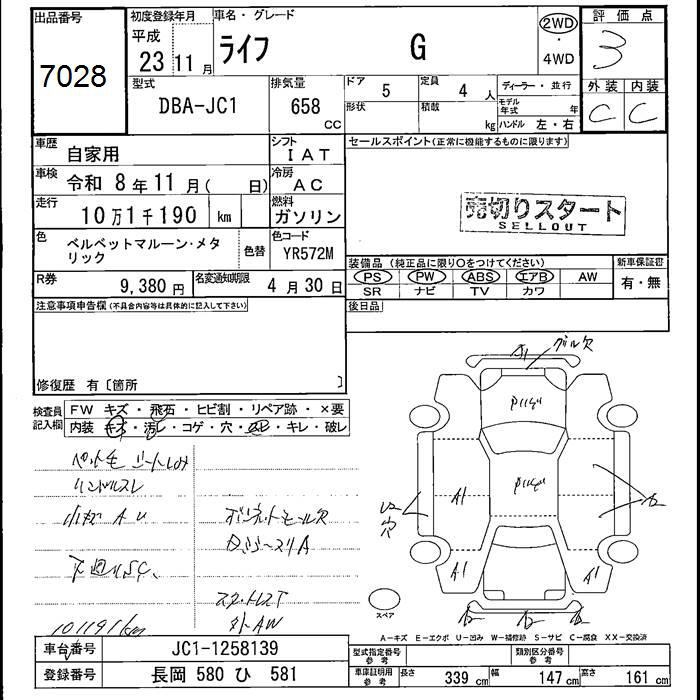 出品番号
7028
初度登録年月
平成
23 11 月
車名・グレード
ライフ G
2WD
・
4WD
評価点
3
外装 内装
C C
型式
DBA-JC1
排気量
658
CC
ドア
5
定員
4 人
形状
積載
kg
ディーラー・並行
モデル年式 年
ハンドル 左・右
車歴
自家用
シフト
IAT
車検
令和 8 年 11 月 ( 日)
冷房
AC
走行
10 万 1 千 190 km
燃料
ガソリン
色
ベルベットマルーン・メタリック
色替
色コード
YR572M
R券
9,380 円
名変通知期限
4 月 30 日
セールスポイント(正常に機能するものに限ります)
売切りスタート
SELLOUT
装備品 (純正品に限り○をつけてください)
PS PW ABS エアB AW
SR ナビ TV カワ
新車保証書
有・無
後日品
注意事項申告欄 (不具合内容等は具体的に記入して下さい)
修復歴 有〔箇所 〕
検査員
記入欄
FW キズ・飛石・ヒビ割・リペア跡・×要
内装 キズ・汚レ・コゲ・穴・スレ・キレ・破レ
ハンドルスレ
小キズ A U
下廻りSC、
101191km
A1
グリル欠
A1
A1
A1
スペア
A-キズ E-エクボ U-凹み W-補修跡 S-サビ C-腐食 XX-交換済
車台番号
JC1-1258139
登録番号
長岡 580 ひ 581
型式指定番号
参考
類別区分番号
参考
車庫証明用
参考
長さ 339 cm 幅 147 cm 高さ 161 cm